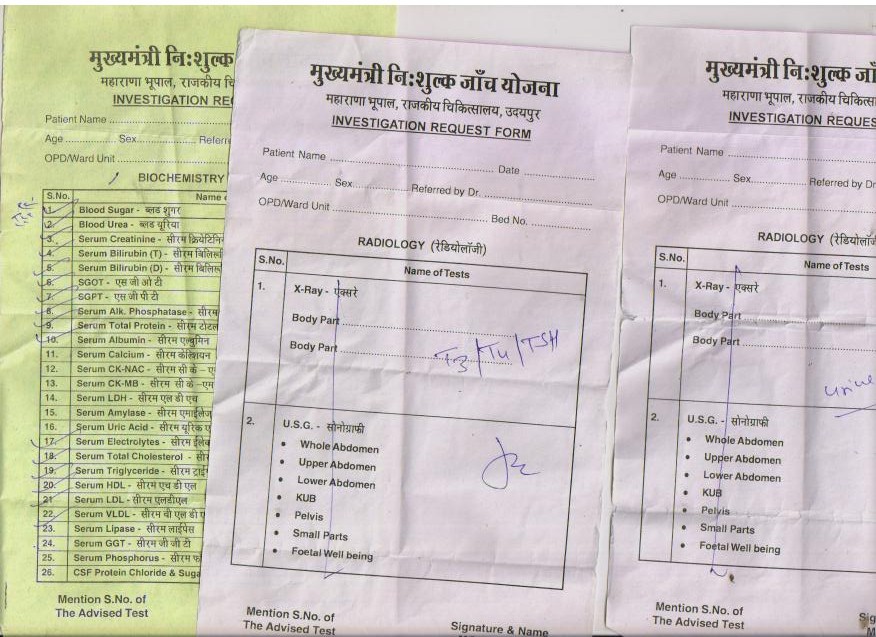 मुख्यमंत्री नि:शुल्क
महाराणा भूपाल, राजकीय चि
INVESTIGATION REQ
Patient Name
Age Sex Referre
OPD/Ward Unit
BIOCHEMISTRY
S.No. Name
1. Blood Sugar - ब्लड शुगर
2. Blood Urea - ब्लड यूरिया
3. Serum Creatinine - सीरम क्रियेटिनि
4. Serum Bilirubin (T) - सीरम बिलिरू
5. Serum Bilirubin (D) - सीरम बिलिरू
6. SGOT - एस जी ओ टी
7. SGPT - एस जी पी टी
8. Serum Alk. Phosphatase - सीरम
9. Serum Total Protein - सीरम टोटल
10. Serum Albumin - सीरम एल्बुमिन
11. Serum Calcium - सीरम केल्शियम
12. Serum CK-NAC - सीरम सी के - ए
13. Serum CK-MB - सीरम सी के -एम
14. Serum LDH - सीरम एल डी एच
15. Serum Amylase - सीरम एमाईलेज
16. Serum Uric Acid - सीरम यूरिक ए
17. Serum Electrolytes - सीरम ईलेक
18. Serum Total Cholesterol - सीर
19. Serum Triglyceride - सीरम ट्राई
20. Serum HDL - सीरम एच डी एल
21 Serum LDL - सीरम एलडीएल
22. Serum VLDL - सीरम वी एल डी ए
23. Serum Lipase - सीरम लाईपेस
24. Serum GGT - सीरम जी जी टी
25. Serum Phosphorus - सीरम फ
26. CSF Protein Chloride & Suga
Mention S.No. of
The Advised Test
मुख्यमंत्री नि:शुल्क जाँच योजना
महाराणा भूपाल, राजकीय चिकित्सालय, उदयपुर
INVESTIGATION REQUEST FORM
Patient Name Date
Age Sex Referred by Dr.
OPD/Ward Unit Bed No.
RADIOLOGY (रेडियोलॉजी)
S.No. Name of Tests
1. X-Ray - एक्सरे
Body Part
Body Part
T3/T4/TSH
2. U.S.G. - सोनोग्राफी
• Whole Abdomen
• Upper Abdomen
• Lower Abdomen
• KUB
• Pelvis
• Small Parts
• Foetal Well being
Mention S.No. of
The Advised Test
Signature & Name
मुख्यमंत्री नि:शुल्क जाँ
महाराणा भूपाल, राजकीय चिकित्सा
INVESTIGATION REQUES
Patient Name
Age Sex Referred by Dr
OPD/Ward Unit
RADIOLOGY (रेडियोलॉजी
S.No. Name of Tests
1. X-Ray - एक्सरे
Body Part
Body Part
urine
2. U.S.G. - सोनोग्राफी
• Whole Abdomen
• Upper Abdomen
• Lower Abdomen
• KUB
• Pelvis
• Small Parts
• Foetal Well being
Mention S.No. of
The Advised Test
Sig